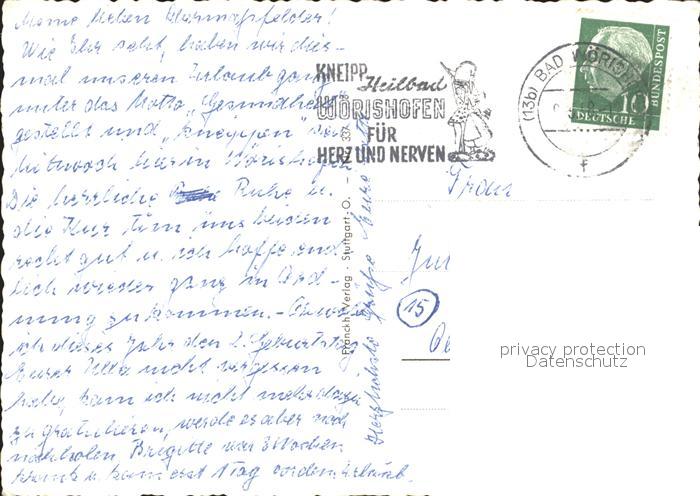 Meine lieben
Wie Ihr seht, haben wir dies-
mal unseren Urlaub ganz
unter das Motto „Gesundheit"
gestellt und „kneippen" seit
Mittwoch hier in Wörishofen.
Die herrliche Ruhe u.
die Kur tun uns beiden
recht gut u. ich hoffe end-
lich wieder ganz in Ord-
nung zu kommen. - Obwohl
ich dieses Jahr den 2. Geburtstag
Eurer Ulla nicht vergessen
habe, kam ich nicht mehr dazu
zu gratulieren, werde es aber noch
nachholen. Brigitte war 3 Wochen
krank u. kam erst 1 Tag vor dem Urlaub.
Herzlichste Grüße Eure
Franckh-Verlag · Stuttgart-O. ·
KNEIPP Heilbad
WÖRISHOFEN
FÜR
HERZ UND NERVEN
(13b) BAD WÖRISH
f
10
DEUTSCHE
BUNDESPOST
15
privacy protection
Datenschutz